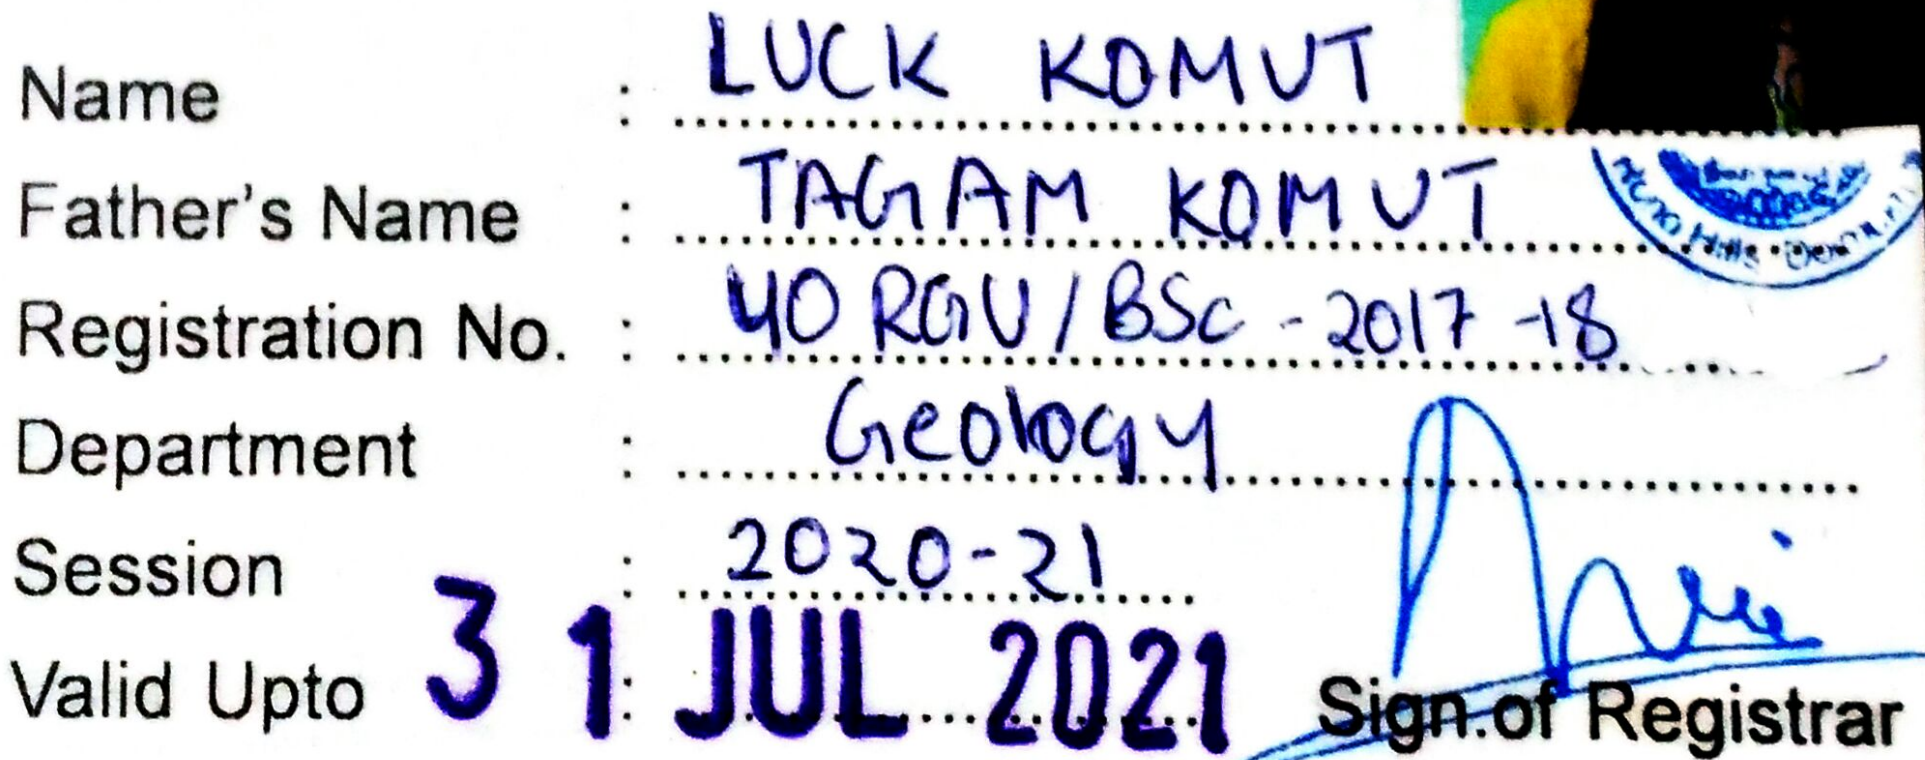 Name : LUCK KOMUT
Father's Name : TAGAM KOMUT
Registration No. : 40 RGU/BSc - 2017 -18
Department : Geology
Session : 2020-21
Valid Upto : 31 JUL 2021
Sign.of Registrar
Hills